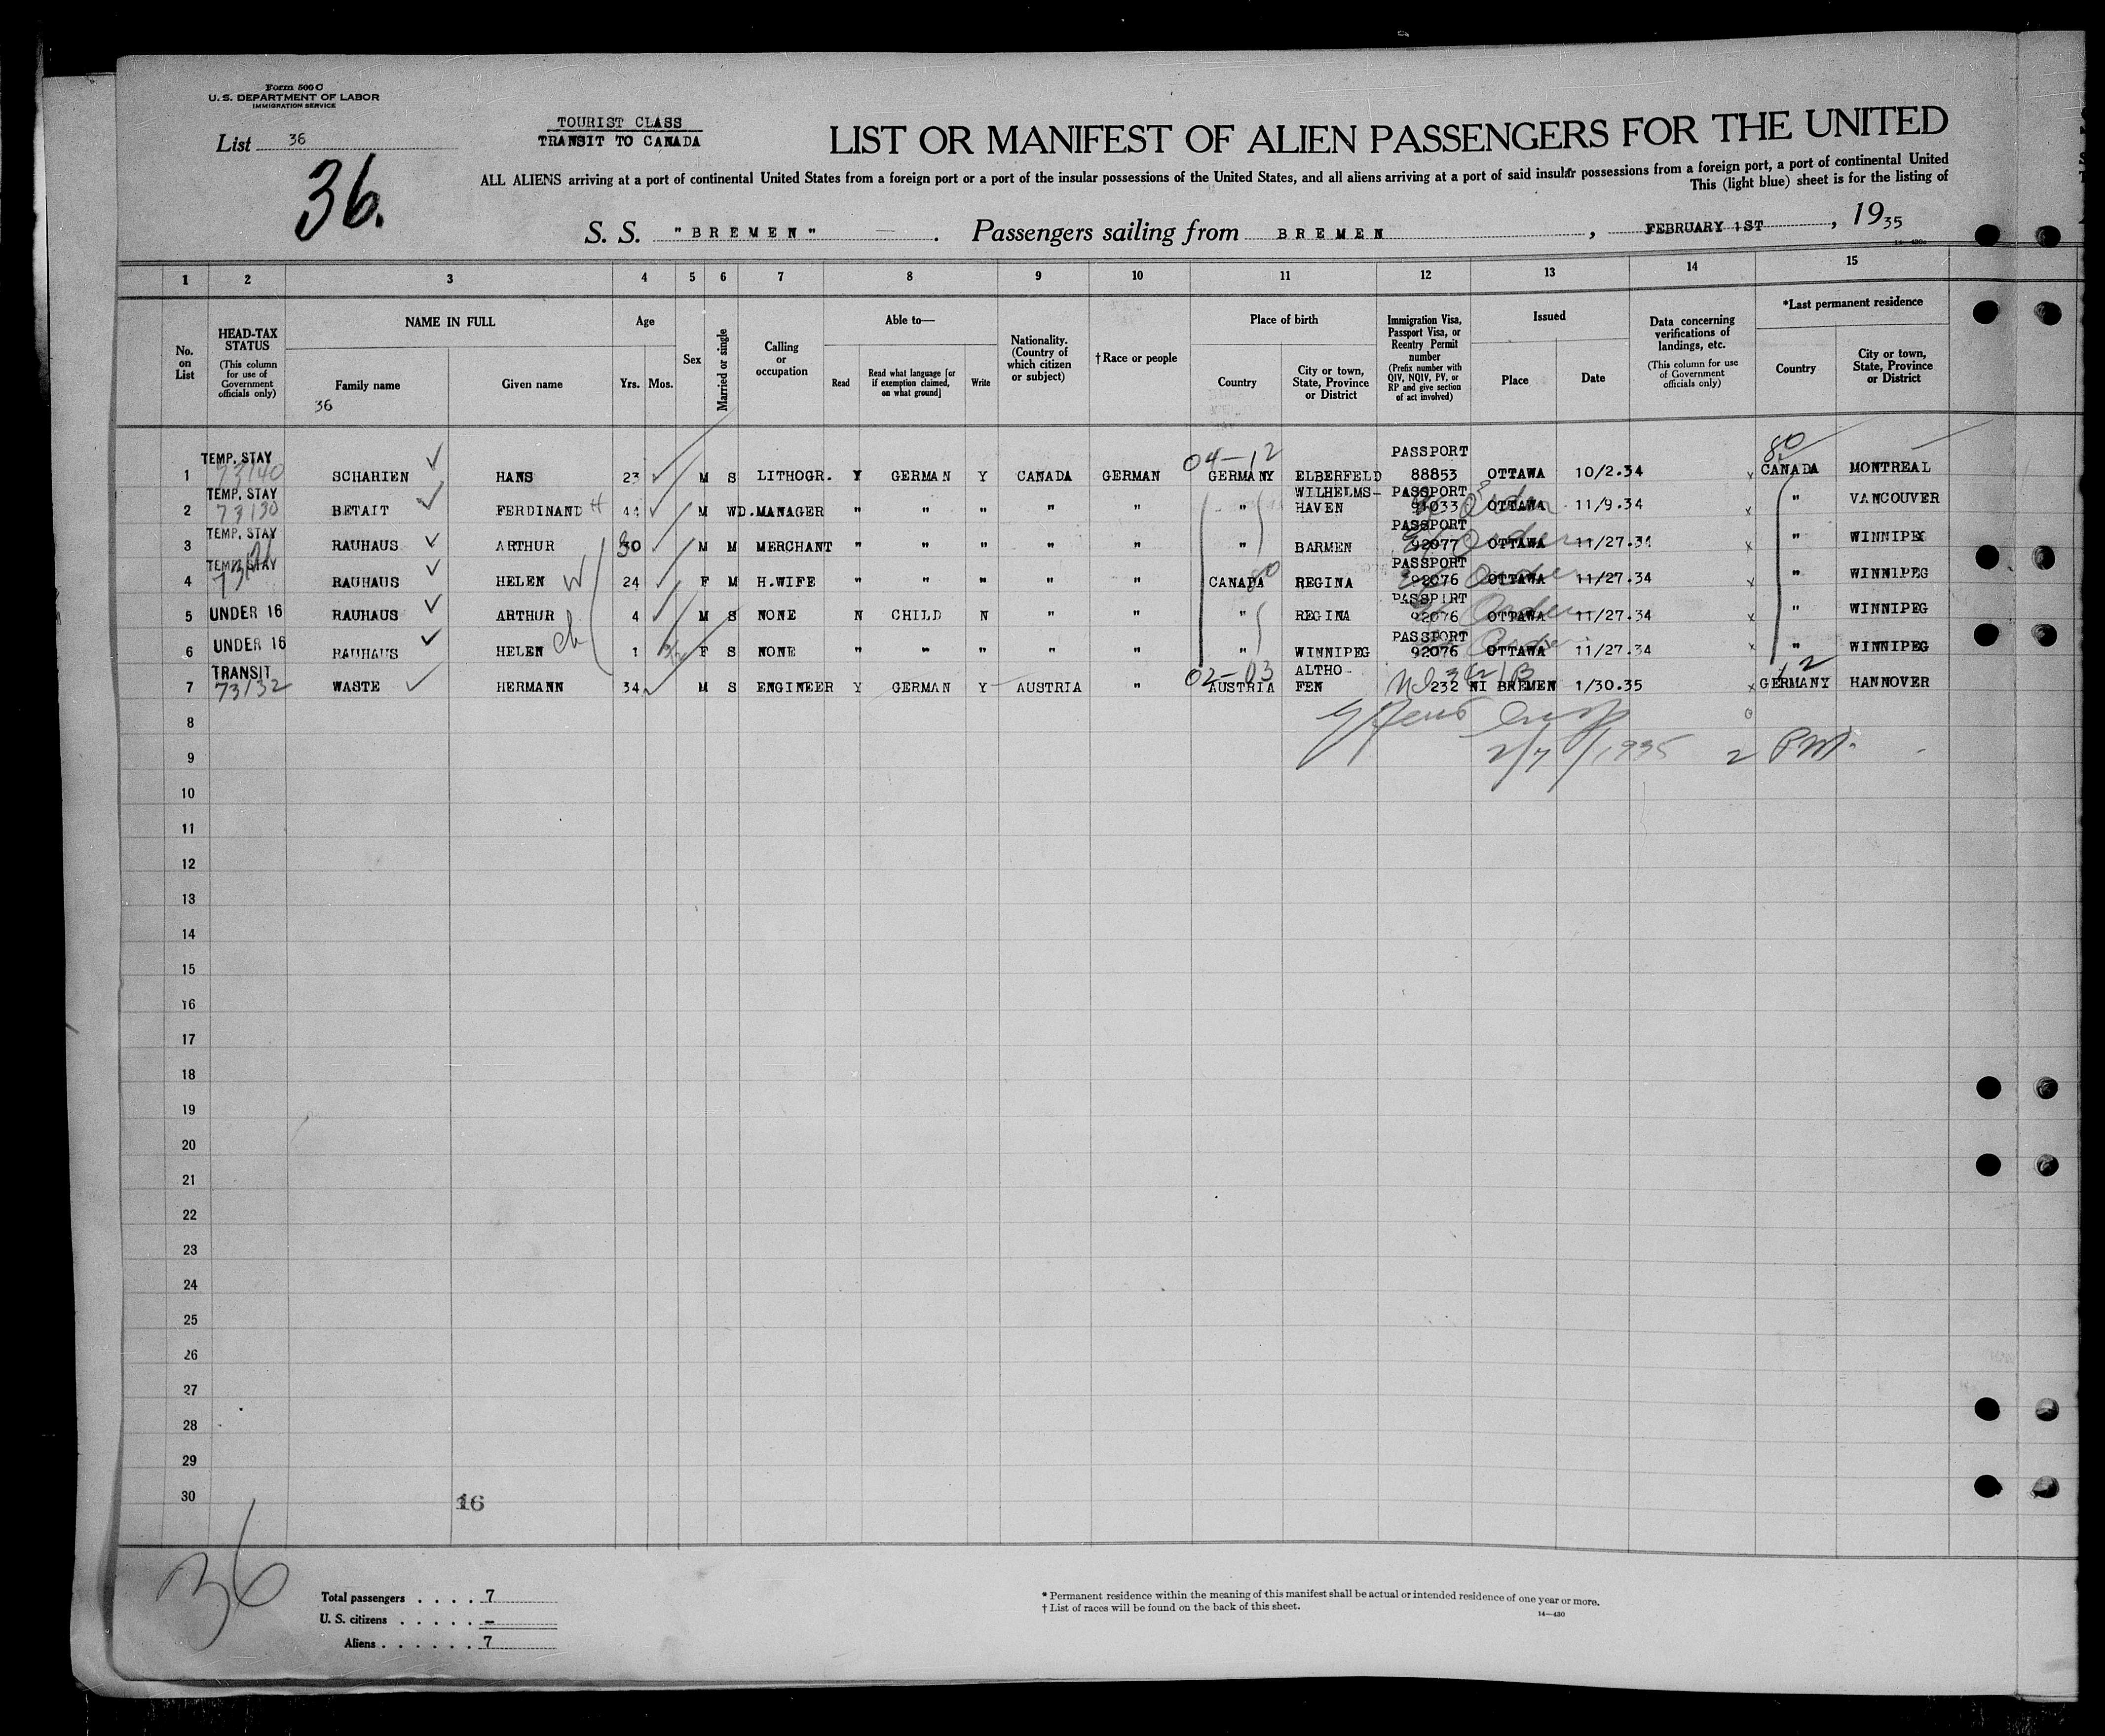 Form 500 C
U. S. DEPARTMENT OF LABOR
IMMIGRATION SERVICE
List 36
36.
TOURIST CLASS
TRANSIT TO CANADA
LIST OR MANIFEST OF ALIEN PASSENGERS FOR THE UNITED
ALL ALIENS arriving at a port of continental United States from a foreign port or a port of the insular possessions of the United States, and all aliens arriving at a port of said insular possessions from a foreign port, a port of continental United
This (light blue) sheet is for the listing of
S. S. "BREMEN" . Passengers sailing from BREMEN , FEBRUARY 1ST , 1935
14—430a
1 2 3 4 5 6 7 8 9 10 11 12 13 14 15
No. on List
HEAD-TAX STATUS (This column for use of Government officials only)
NAME IN FULL
Family name
Given name
36
Age
Yrs. Mos.
Sex
Married or single
Calling or occupation
Able to—
Read
Read what language [or if exemption claimed, on what ground]
Write
Nationality. (Country of which citizen or subject)
†Race or people
Place of birth
Country
City or town, State, Province or District
Immigration Visa, Passport Visa, or Reentry Permit number (Prefix number with QIV, NQIV, PV, or RP and give section of act involved)
Issued
Place
Date
Data concerning verifications of landings, etc. (This column for use of Government officials only)
*Last permanent residence
Country
City or town, State, Province or District
TEMP. STAY 04-12 PASSPORT 80
73140
1 SCHARIEN HANS 23 M S LITHOGR. Y GERMAN Y CANADA GERMAN GERMANY ELBERFELD 88853 OTTAWA 10/2.34 x CANADA MONTREAL
TEMP. STAY WILHELMS- PASSPORT
73130
2 BETAIT FERDINAND H 44 M WD. MANAGER " " " " " " HAVEN 91033 OTTAWA 11/9.34 x " VANCOUVER
TEMP. STAY PASSPORT
3 RAUHAUS ARTHUR 30 M M MERCHANT " " " " " " BARMEN 92077 OTTAWA 11/27.34 x " WINNIPEG
TEMP. STAY PASSPORT
4 RAUHAUS HELEN W 24 F M H.WIFE " " " " " CANADA 80 REGINA 92076 OTTAWA 11/27.34 x " WINNIPEG
PASSPIRT
5 UNDER 16 RAUHAUS ARTHUR 4 M S NONE N CHILD N " " " REGINA 92076 OTTAWA 11/27.34 x " WINNIPEG
PASSPORT
6 UNDER 16 RAUHAUS HELEN ch 1 F S NONE " " " " " " WINNIPEG 92076 OTTAWA 11/27.34 x " WINNIPEG
TRANSIT 02-03 ALTHO- 12
7 73132 WASTE HERMANN 34 M S ENGINEER Y GERMAN Y AUSTRIA " AUSTRIA FEN 232 NI BREMEN 1/30.35 x GERMANY HANNOVER
8
9 2/7/1935 2 PM.
10
11
12
13
14
15
16
17
18
19
20
21
22
23
24
25
26
27
28
29
30
16
36
Total passengers . . . . 7
U. S. citizens . . . . . –
Aliens . . . . . . 7
* Permanent residence within the meaning of this manifest shall be actual or intended residence of one year or more.
† List of races will be found on the back of this sheet.
14—430